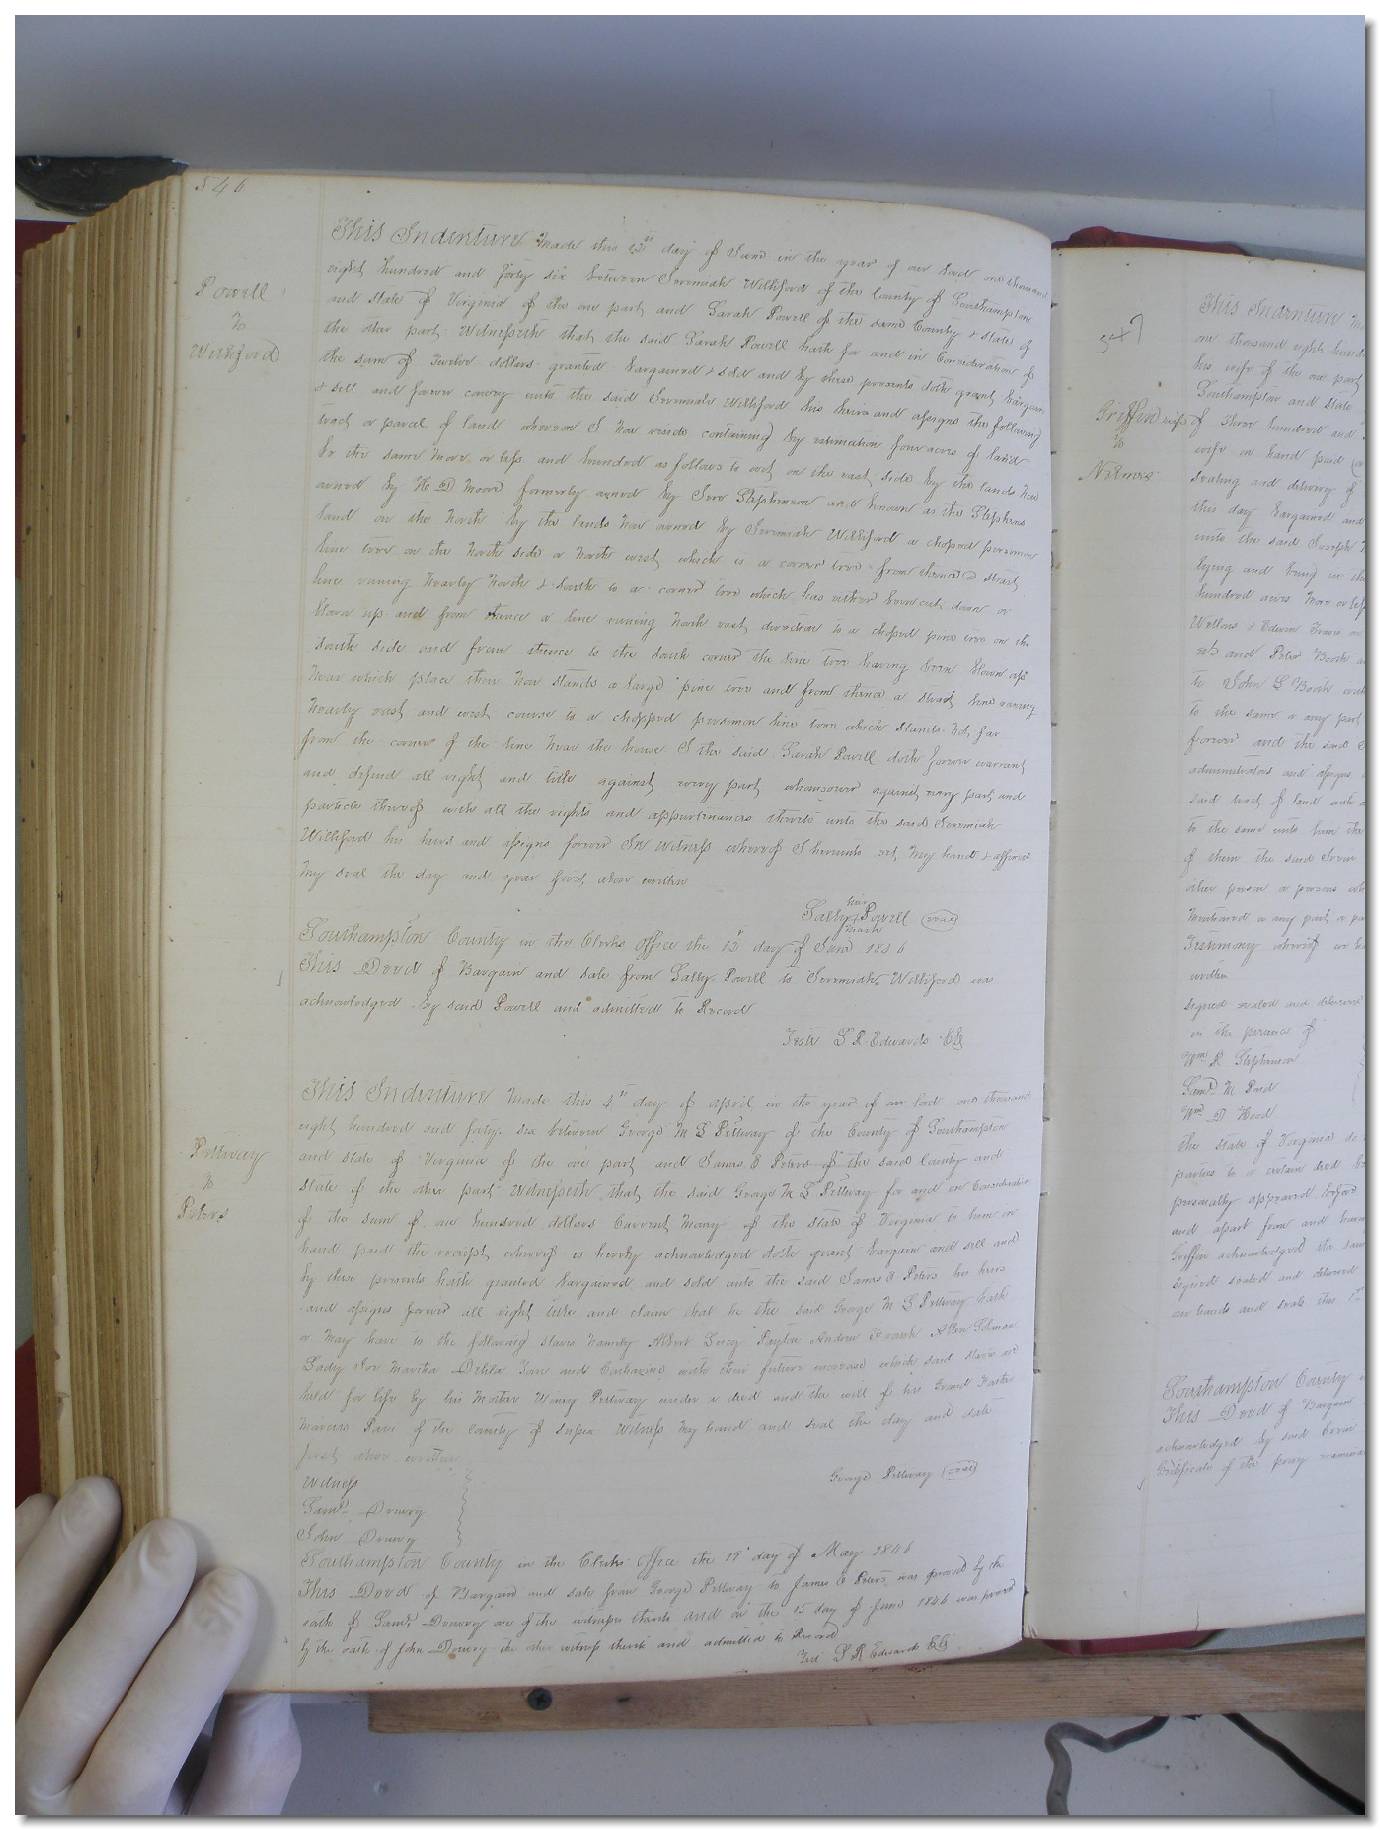 546
Powell
to
Williford
This Indenture made this 15th day of June in the year of our Lord one thousand
eight hundred and forty six between Jeremiah Williford of the County of Southampton
and State of Virginia of the one part and Sarah Powell of the same County & State of
the other part Witnesseth that the said Sarah Powell hath for and in Consideration of
the sum of twelve dollars granted bargained & sold and by these presents doth grant bargain
& sell and forever convey unto the said Jeremiah Williford his heirs and assigns the following
tract or parcel of land whereon I now reside containing by estimation four acres of land
be the same more or less and bounded as follows to wit on the east side by the lands now
owned by W D Moore formerly owned by Stephenson and known as the Stephens
land on the North by the lands now owned by Jeremiah Williford a choped persimon
line tree on the North side or North west which is a corner tree from thence a strait
line runing nearly North & South to a corner tree which has either been cut down or
blown up and from thence a line runing North east direction to a choped pine tree on the
South side and from thence to the South corner the line tree having been blown up
near which place there now stands a large pine tree and from thence a strait line runing
nearly east and west course to a chopped persimon line tree which stands not far
from the corner of the line near the house I the said Sarah Powell doth forever warrant
and defend all right and title against every part whomsoever against every part and
particle thereof with all the rights and appurtenances thereto unto the said Jeremiah
Williford his heirs and assigns forever In witness whereof I hereunto set my hand & affixed
my seal the day and year first above written
her
Sally + Powell (seal)
mark
Southampton County in the Clerks office the 15th day of June 1846
This Deed of Bargain and sale from Sally Powell to Jeremiah Williford was
acknowledged by said Powell and admitted to Record
Teste L R Edwards CC
Pettway
to
Peters
This Indenture made this 4th day of April in the year of our Lord one thousand
eight hundred and forty six between George M S Pettway of the County of Southampton
and State of Virginia of the one part and James E Peters of the said County and
State of the other part Witnesseth that the said George M S Pettway for and in Consideration
of the sum of one hundred dollars Current Money of the State of Virginia to him in
hand paid the receipt whereof is hereby acknowledged doth grant bargain and sell and
by these presents hath granted bargained and sold unto the said James E Peters his heirs
and assigns forever all right title and claim that he the said George M S Pettway hath
or may have to the following slaves namely Albert Lucy Peyton Andrew Frank Allen Solomon
Martha Delila Jane and Catharine with their future increase which said slaves are
held for life by his Mother Pettway under a deed and the will of his Grand Father
of the County of Sussex Witness my hand and seal the day and date
first above written
George Pettway (seal)
Witness
Saml. Drewry
John Drewry
Southampton County in the Clerks Office the 19th day of May 1846
This Deed of Bargain and sale from George Pettway to James E Peters was proved by the
oath of Saml. Drewry one of the witnesses thereto and on the 15 day of June 1846 was proved
by the oath of John Drewry the other witness thereto and admitted to Record
Test L R Edwards CC
547
Griffin & wife
to
This Indenture
one thousand eight hundred
his wife of the one part
Southampton and State
of three hundred and
wife in hand paid
sealing and delivery of
this day bargained and
unto the said Joseph
lying and being in the
hundred acres more or less
and Peter Booth
to John S Booth
to the same or any part
forever and the said
administrators and assigns
said tract of land
to the same unto him the
of them the said
other person or persons
or any part or
Testimony whereof
written
Signed sealed and delivered
in the presence of
Wm R Stephenson
Saml. M
Wm D Hood
the State of Virginia do
parties to a certain deed
personally appeared before
and apart from and
Griffin acknowledged the same
signed sealed and delivered
our hands and seals this
Southampton County
This Deed of Bargain
acknowledged by said
Certificate of the privy examination